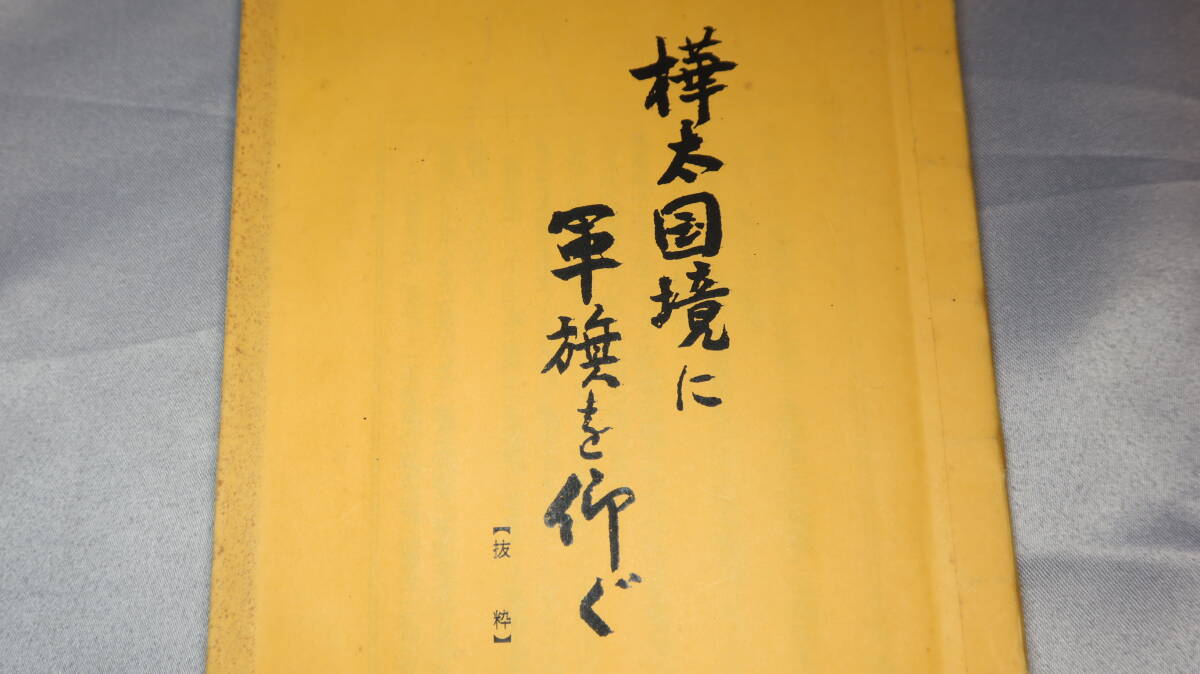 樺太国境に
軍旗を仰ぐ
【抜 粋】